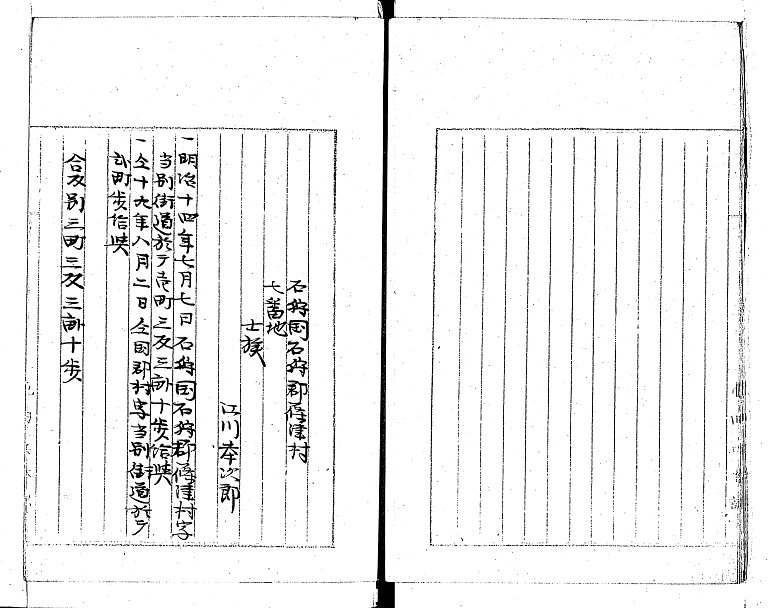 石狩国石狩郡篠津村
七番地
士族
江川本次郎
一明治十四年七月七日石狩国石狩郡篠津村字
当別街道於テ壱町三反三畝十歩給与
一仝十九年八月二日仝国郡村字当別街道於テ
弐町歩給与
合反別三町三反三畝十歩